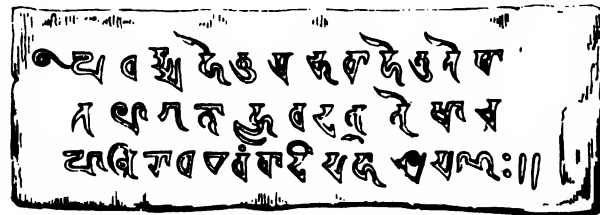 ये धर्म्मा हेतुप्रभवा हेतुन्तेषां
तथागत ह्यवदत् तेषां च
यो निरोध एवंवादी महाश्रमणः॥